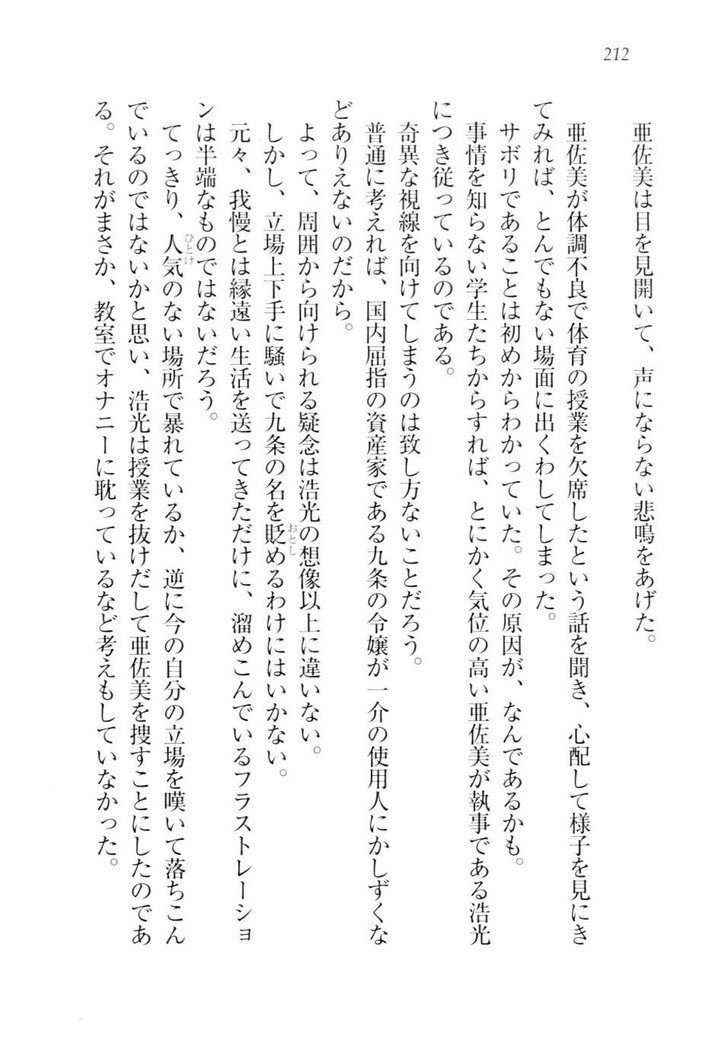 212
亜佐美は目を見開いて、声にならない悲鳴をあげた。
亜佐美が体調不良で体育の授業を欠席したという話を聞き、心配して様子を見にき
てみれば、とんでもない場面に出くわしてしまった。
サボリであることは初めからわかっていた。その原因が、なんであるかも。
事情を知らない学生たちからすれば、とにかく気位の高い亜佐美が執事である浩光
につき従っているのである。
奇異な視線を向けてしまうのは致し方ないことだろう。
普通に考えれば、国内屈指の資産家である九条の令嬢が一介の使用人にかしずくな
どありえないのだから。
よって、周囲から向けられる疑念は浩光の想像以上に違いない。
しかし、立場上下手に騒いで九条の名を貶（おとし）めるわけにはいかない。
元々、我慢とは縁遠い生活を送ってきただけに、溜めこんでいるフラストレーショ
ンは半端なものではないだろう。
てっきり、人気（ひとけ）のない場所で暴れているか、逆に今の自分の立場を嘆いて落ちこん
でいるのではないかと思い、浩光は授業を抜けだして亜佐美を捜すことにしたのであ
る。それがまさか、教室でオナニーに耽っているなど考えもしていなかった。